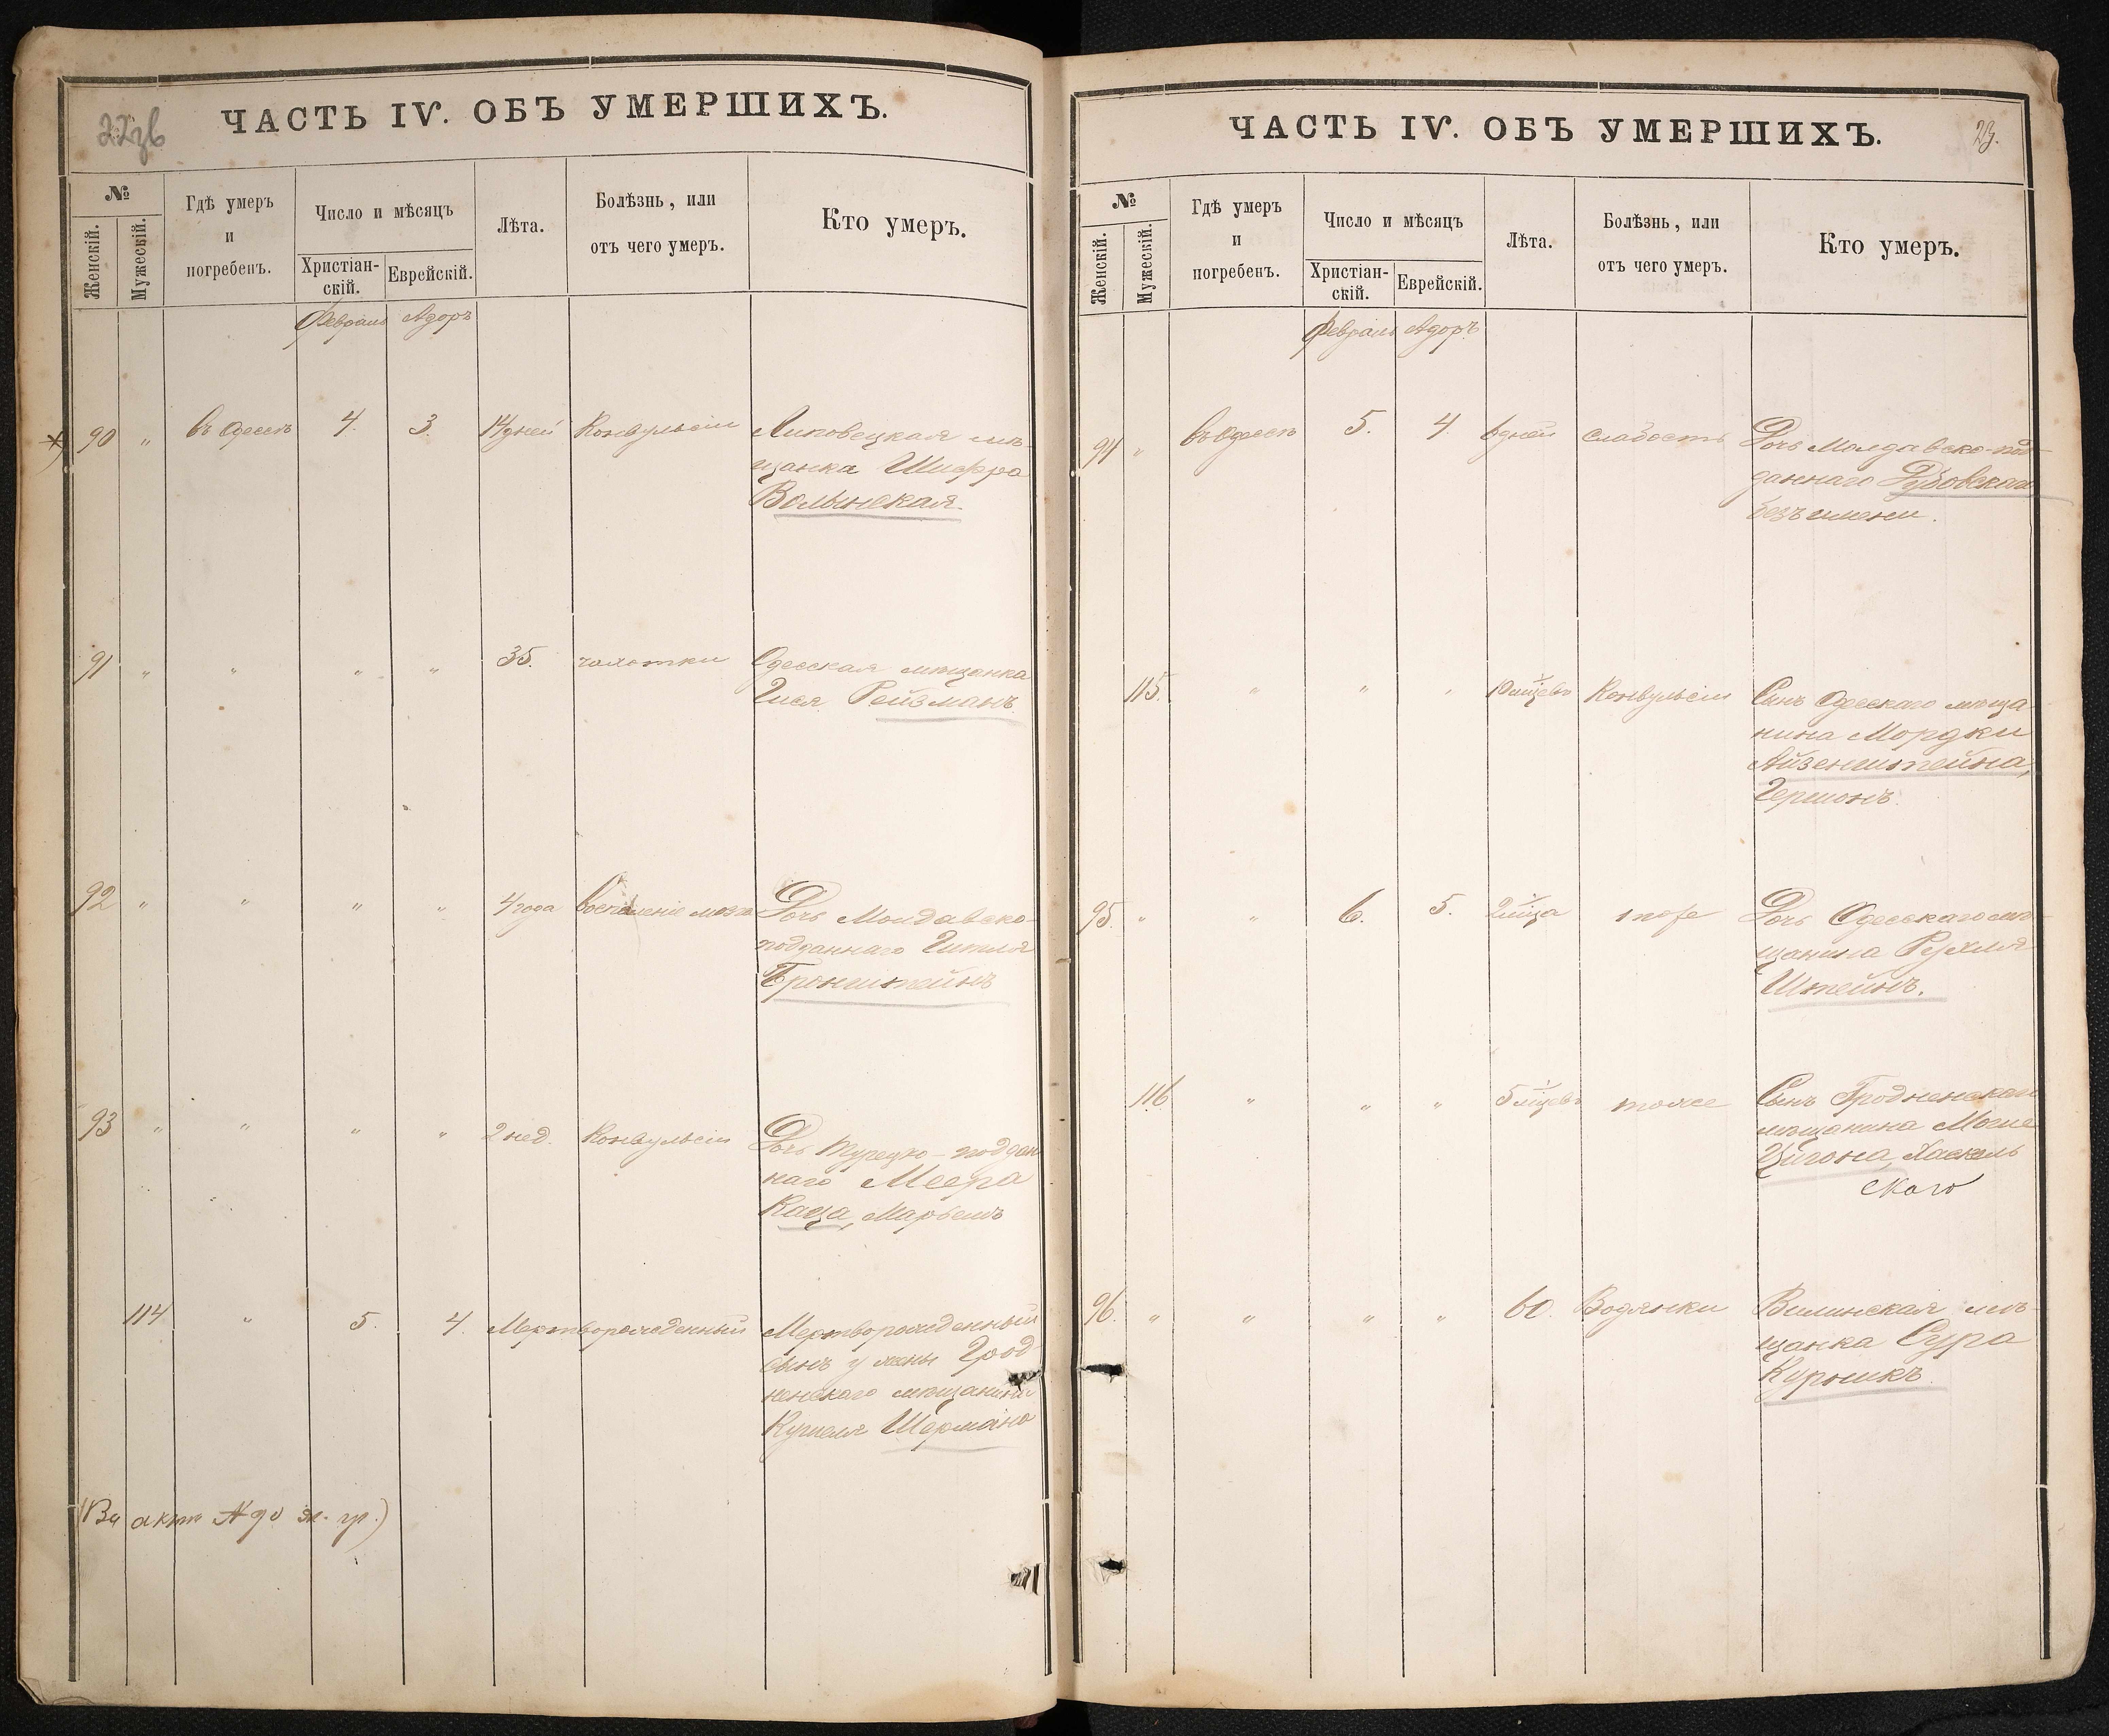 ЧАСТЬ IV. ОБЪ УМЕРШИХЪ.
№
Женскій.
Мужескій.
Гдѣ умеръ
и
погребенъ.
Число и мѣсяцъ
Христіан-
скій.
Еврейскій.
Лѣта.
Болѣзнь, или
отъ чего умеръ.
Кто умеръ.
Февраль Адоръ
90 " въ Одессѣ 4. 3. 14 дней Конвульсіи Липовецкая мѣ-
щанка Шифра
Волынская.
91 " " " " 35. чахотки Одесская мѣщанка
Гися Рейзманъ
92 " " " " 4 года Воспаленіе мозга Дочь Молдавско-
подданнаго Гитля
Бронштейнъ
93 " " " " 2 нед. Конвульсіи Дочь Турецко-поддан
наго Меера
Каца, Марьемъ
114 " 5. 4. Мертворожденный Мертворожденный
сынъ у жены Грод
ненскаго мѣщанина
Кушеля Шермана
актѣ № 90 гр.)
ЧАСТЬ IV. ОБЪ УМЕРШИХЪ.
23.
№
Женскій.
Мужескій.
Гдѣ умеръ
и
погребенъ.
Число и мѣсяцъ
Христіан-
скій.
Еврейскій.
Лѣта.
Болѣзнь, или
отъ чего умеръ.
Кто умеръ.
Февраль Адоръ
94 " въ Одессѣ 5. 4. 6 дней слабость Дочь Молдавско-под
даннаго
безъ имени.
115. " " " 10 мцевъ Конвульсіи Сынъ Одесскаго мѣща
нина Мордки
Айзенштейна,
Гершонъ.
95. " " 6. 5. 2 мца тоже Дочь Одесскаго мѣ-
щанина Рухля
Штейнъ.
116 " " " 5 мцевъ тоже Сынъ Гродненскаго
мѣщанина
Цигона, Хаскель
скаго
96. " " " " 60. Водянки Вилинская мѣ-
щанка Сура
Курникъ